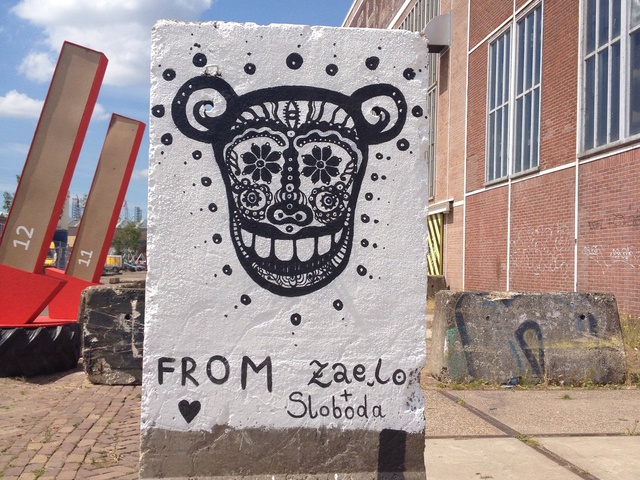 12
11
FROM Zaelo
+
Sloboda